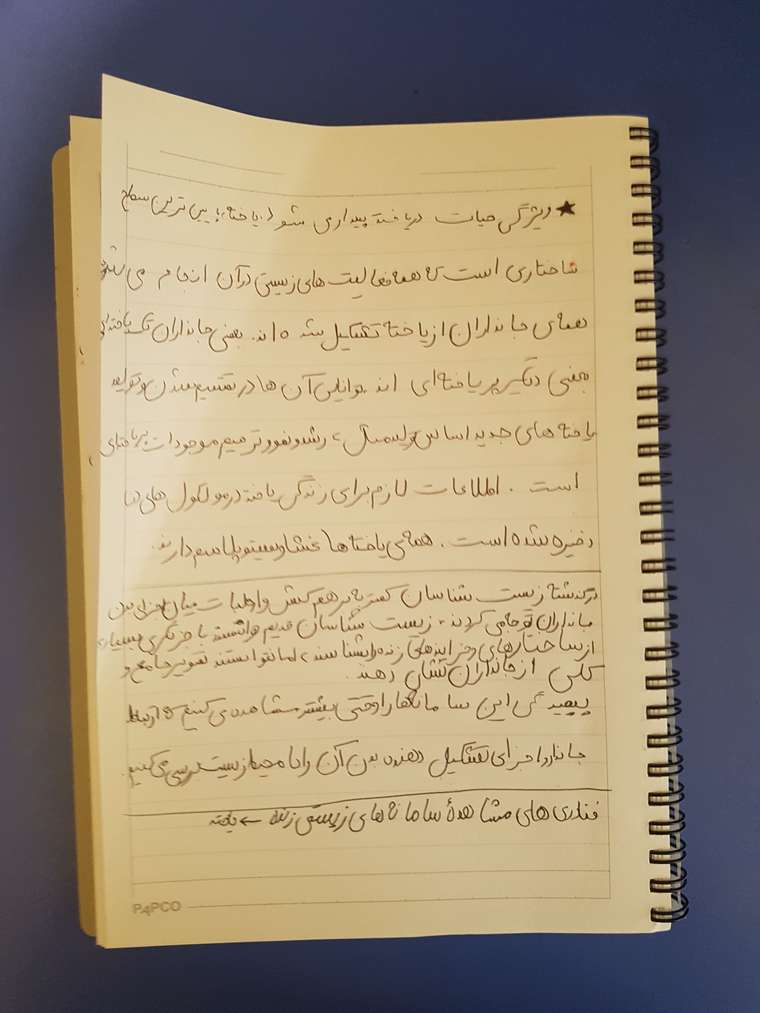 ★ ویژگی حیات در یاخته پدیداری شود. یاخته پایین ترین سطح
ساختاری است که همه فعالیت های زیستی در آن انجام می شود
همه ی جانداران از یاخته تشکیل شده اند. بعضی جانداران تک یاخته ای
بعضی دیگر پر یاخته ای اند توانایی آن ها در تقسیم شدن و تولید
یاخته های جدید اساس تولیدمثل، رشد و نمو و ترمیم موجودات پریاخته ای
است. اطلاعات لازم برای زندگی یاخته در مولکول های دنا
ذخیره شده است. همه ی یاخته ها غشا و سیتوپلاسم دارند.
در گذشته زیست شناسان کمتر به برهم کنش و ارتباطات میان اجزای بدن
جانداران توجه می کردند. زیست شناسان قدیم توانستند با جزئی نگری بسیاری
از ساختارهای و فرایندهای زنده را بشناسند، اما نتوانستند تصویر جامع و
کلی از جانداران نشان دهند.
پیچیدگی این سامانه ها را وقتی بیشتر مشاهده می کنیم که ارتباط
جاندار و اجزای تشکیل دهنده بدن آن را با محیط زیست بررسی می کنیم.
فناوری های مشاهدهٔ سامانه های زیستی زنده ←
P4PCO